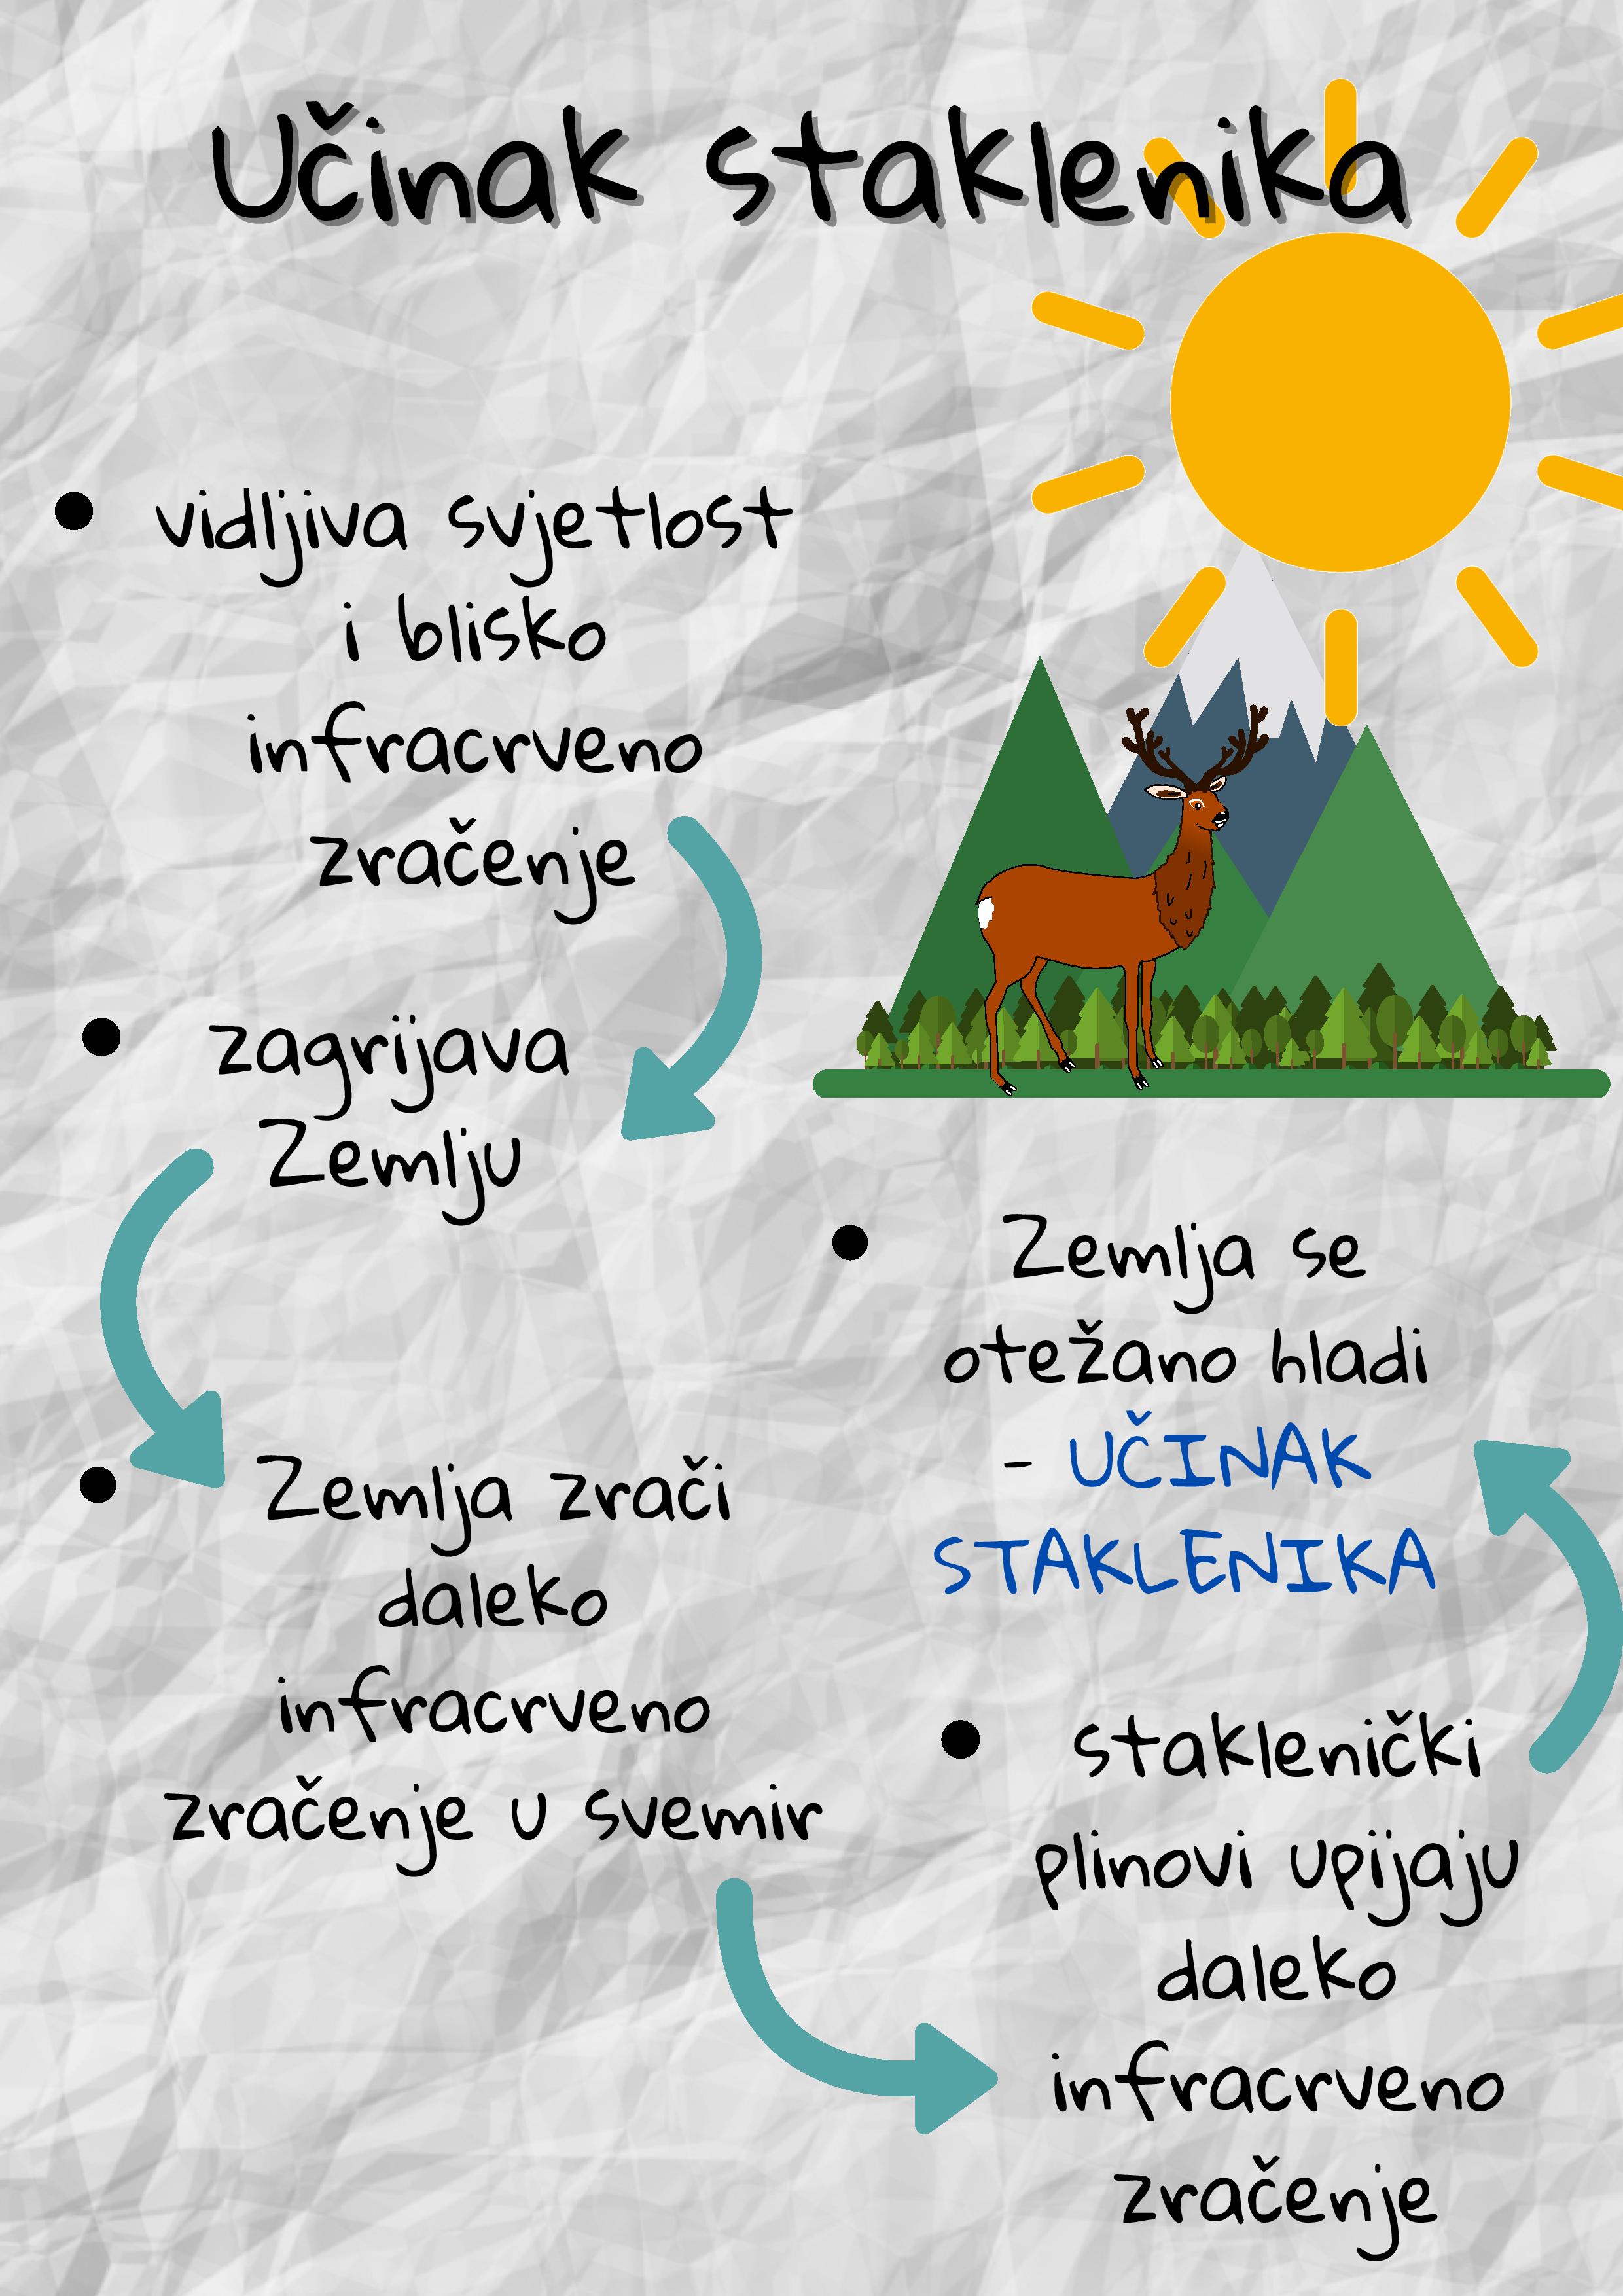 Učinak staklenika
• vidljiva svjetlost
i blisko
infracrveno
zračenje
• zagrijava
Zemlju
• Zemlja zrači
daleko
infracrveno
zračenje u svemir
• staklenički
plinovi upijaju
daleko
infracrveno
zračenje
• Zemlja se
otežano hladi
- UČINAK
STAKLENIKA